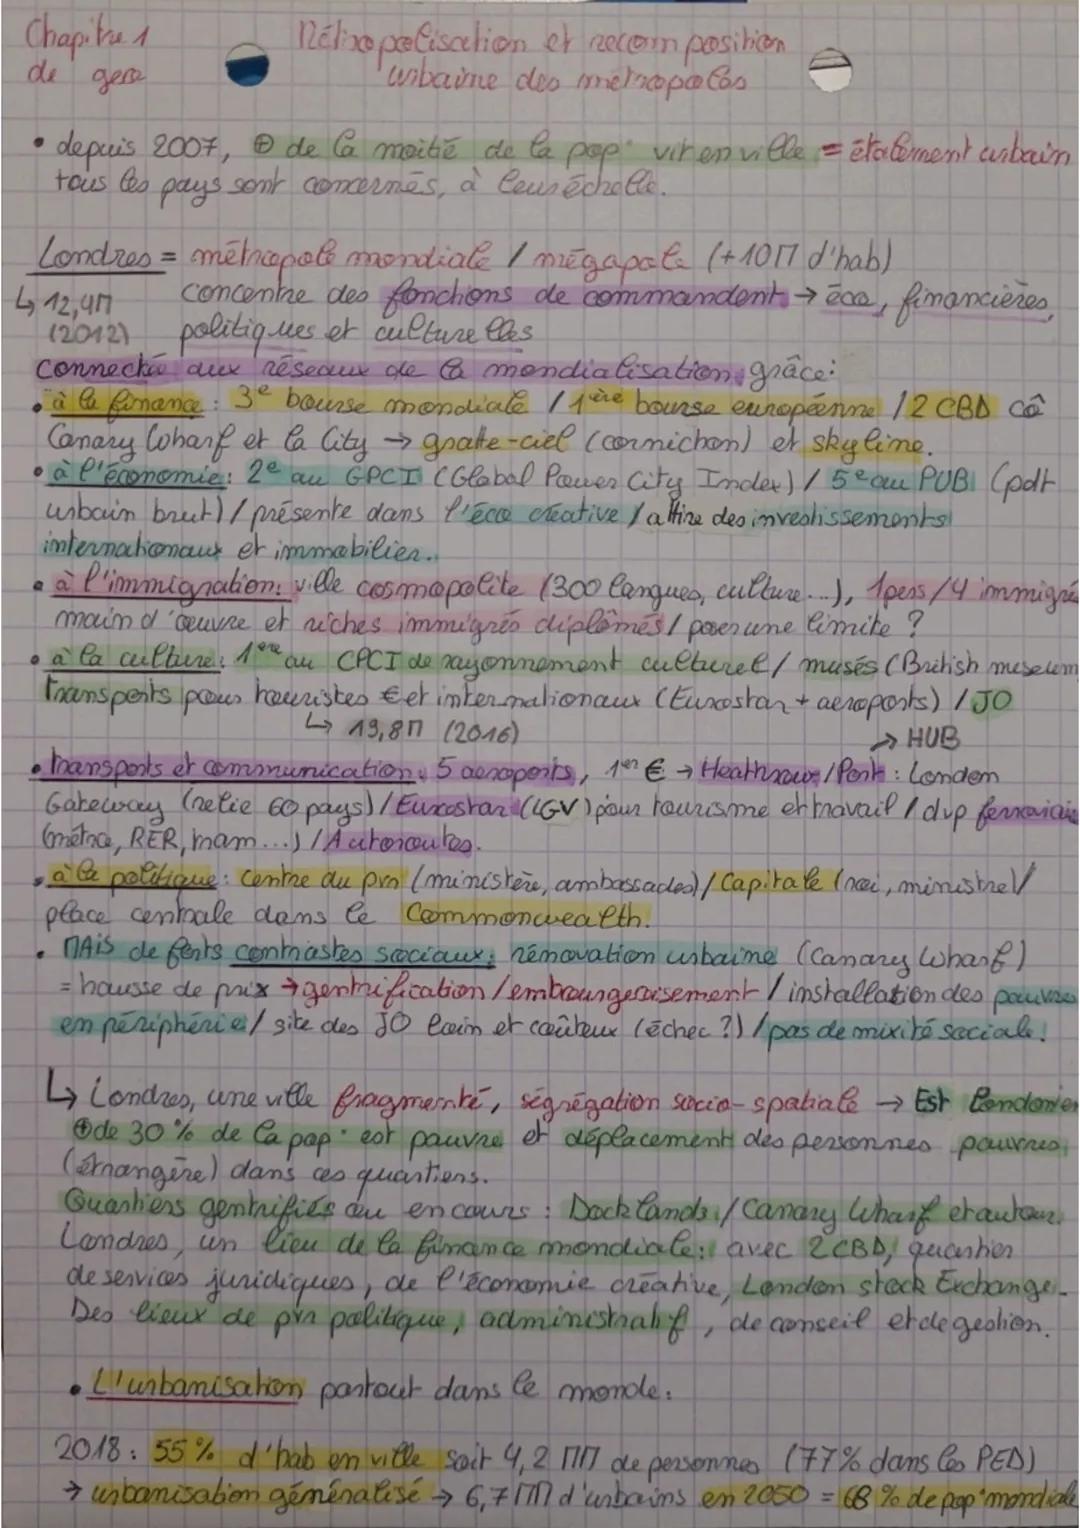 Chapitre 1 Métropolisation et recomposition
de géo urbaine des métropoles
• depuis 2007, ⊕ de la moitié de la pop° vit en ville = étalement urbain
tous les pays sont concernés, à leur échelle.
Londres = métropole mondiale / mégapole (+10M d'hab)
↳ 12,4M concentre des fonctions de commandent → éco, financières,
(2012) politiques et culturelles
connectée aux réseaux de la mondialisation grâce:
• à la finance : 3e bourse mondiale / 1ère bourse européenne / 2 CBD cô
Canary Wharf et la City → gratte-ciel (cornichon) et skyline.
• à l'économie: 2e au GPCI (Global Power City Index) / 5e au PUB (pdt
urbain brut) / présente dans l'éco créative / attire des investissements
internationaux et immobilier.
• à l'immigration: ville cosmopolite (300 langues, culture...), 1pers/4 immigré
main d'œuvre et riches immigrés diplômés / poser une limite ?
• à la culture: 1ère au CPCI de rayonnement culturel / musés (British museum
transports pour touristes € et internationaux (Eurostar + aéroports) / JO
↳ 19,8M (2016) → HUB
• transports et communication: 5 aéroports, 1er € → Heathrow / Port : London
Gateway (relie 60 pays) / Eurostar (LGV) pour tourisme et travail / dvp ferroviaire
(métro, RER, tram...) / Autoroutes.
• à la politique: centre du pvr (ministère, ambassades) / Capitale (roi, ministre) /
place centrale dans le Commonwealth.
• MAiS de forts contrastes sociaux: rénovation urbaine (Canary Wharf)
= hausse de prix → gentrification / embourgeoisement / installation des pauvres
en périphérie / site des JO loin et coûteux (échec ?) / pas de mixité sociale!
↳ Londres, une ville fragmenté, ségrégation socio-spatiale → Est Londonien
⊕ de 30 % de la pop° est pauvre et déplacement des personnes pauvres
(étrangère) dans ces quartiers.
Quartiers gentrifiés ou en cours : Docklands / Canary Wharf et autour.
Londres, un lieu de la finance mondiale: avec 2 CBD, quartier
de services juridiques, de l'économie créative, London stock Exchange.
Des lieux de pvr politique, administratif, de conseil et de gestion.
• L'urbanisation partout dans le monde:
2018 : 55 % d'hab en ville soit 4,2 MM de personnes (77% dans les PED)
→ urbanisation généralisé → 6,7 MM d'urbains en 2050 = 68 % de pop° mondiale